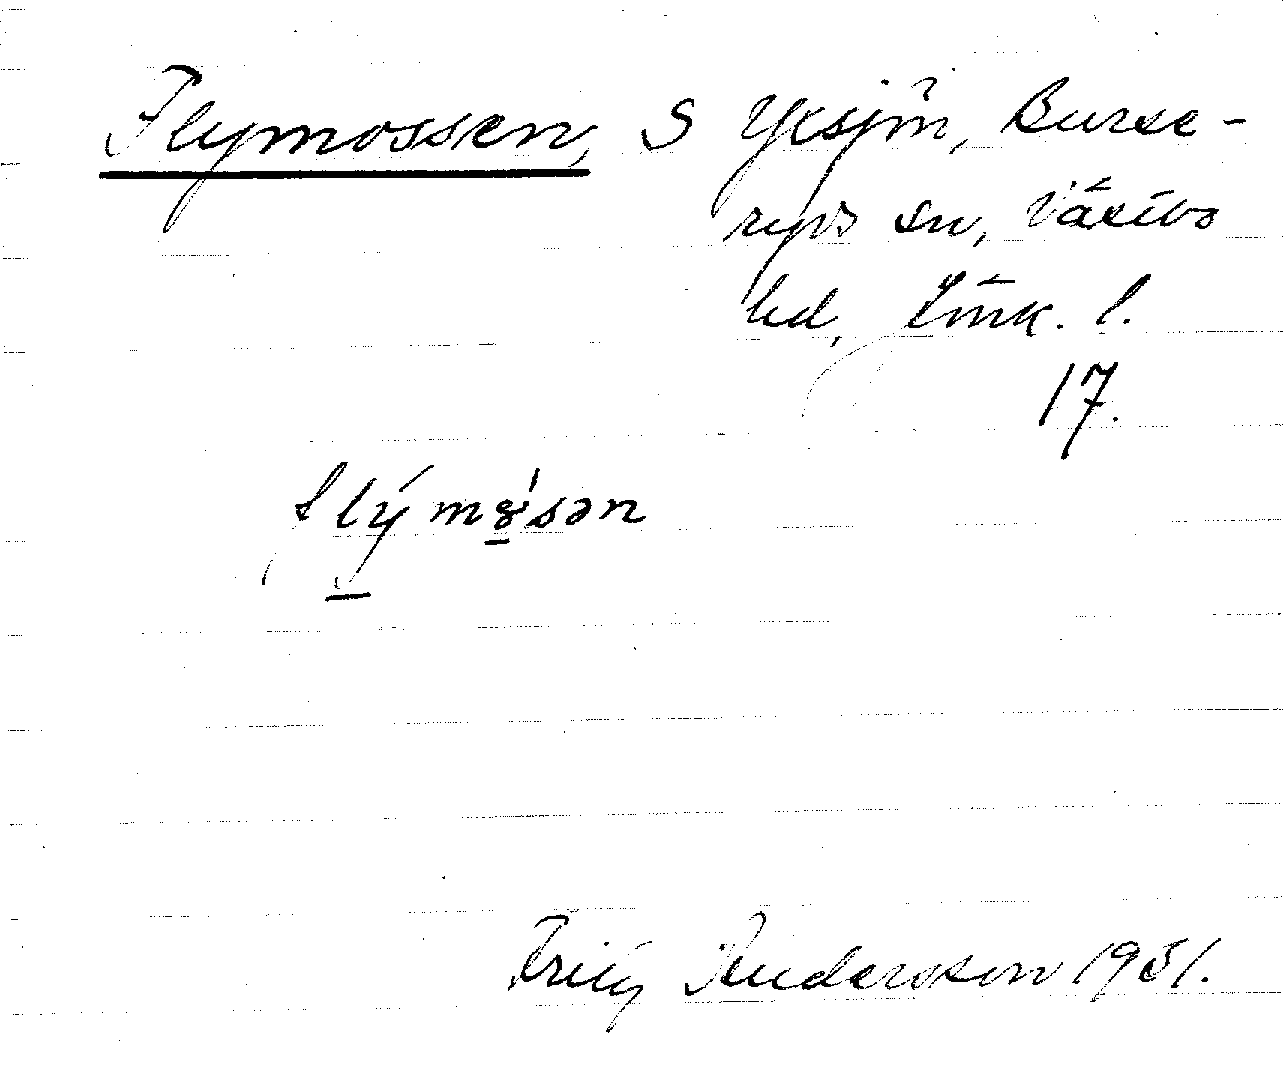 Flymossen, S Yxsjön, Burse-
ryds sn, Västbo
hd, Jönk. l.
17.
flýmossən
Fritz Andersson 1951.